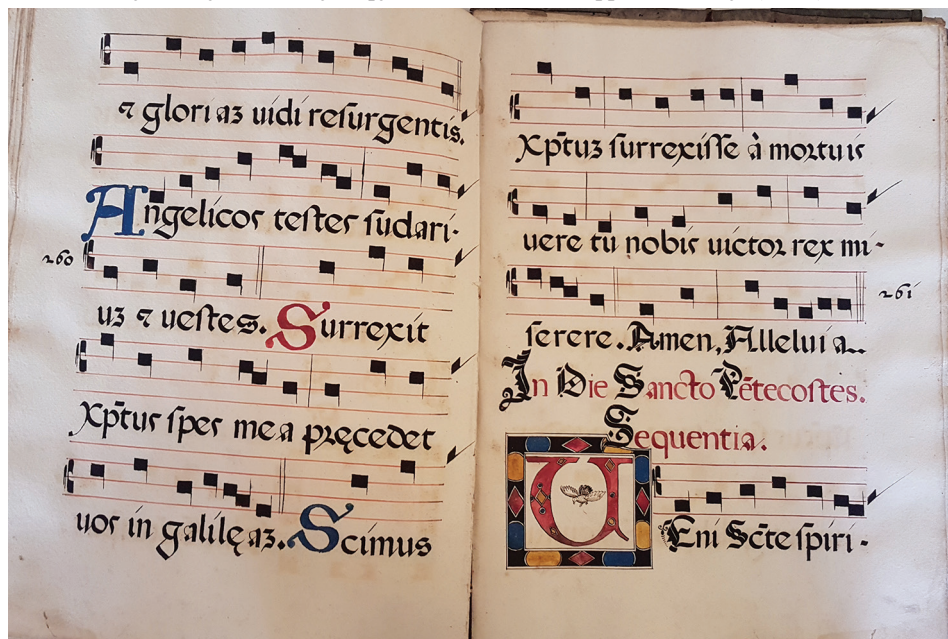 ⁊ gloriaʒ uidi reſurgentis.
Angelicos teſtes ſudari-
260
uʒ ⁊ ueſtes. Surrexit
Xp̄tus ſpes mea pręcedet
uos in galilęaʒ. Scimus
Xp̄tuʒ ſurrexiſſe à mortuis
uere tu nobis uictoꝛ rex mi-
ſerere. Amen, Alleluia..
261
In Die Sancto Pētecoſtes.
Sequentia.
VEni Sc̄te ſpiri-